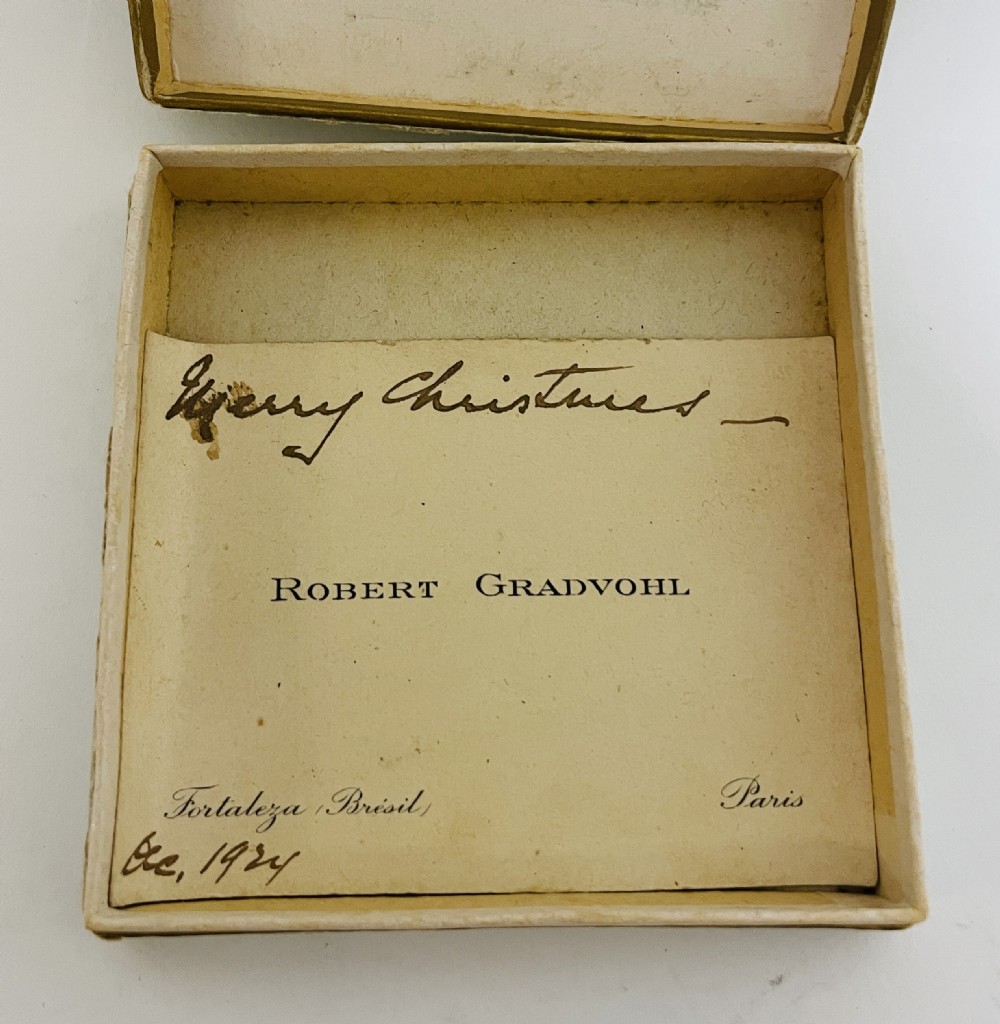 Merry Christmas —
ROBERT GRADVOHL
Fortaleza (Brésil)
Paris
Dec, 1924